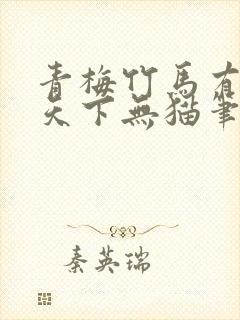 青梅竹馬有
天下無猫筆
秦英瑞